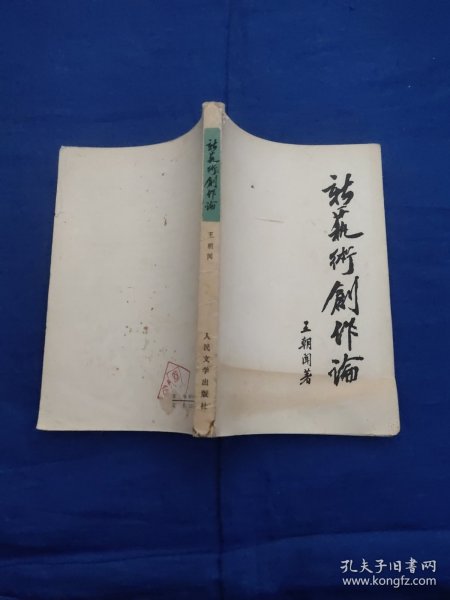 新藝術創作論
王朝聞著
新藝術創作論
王朝闻
人民文学出版社
孔夫子旧书网
www.kongfz.com